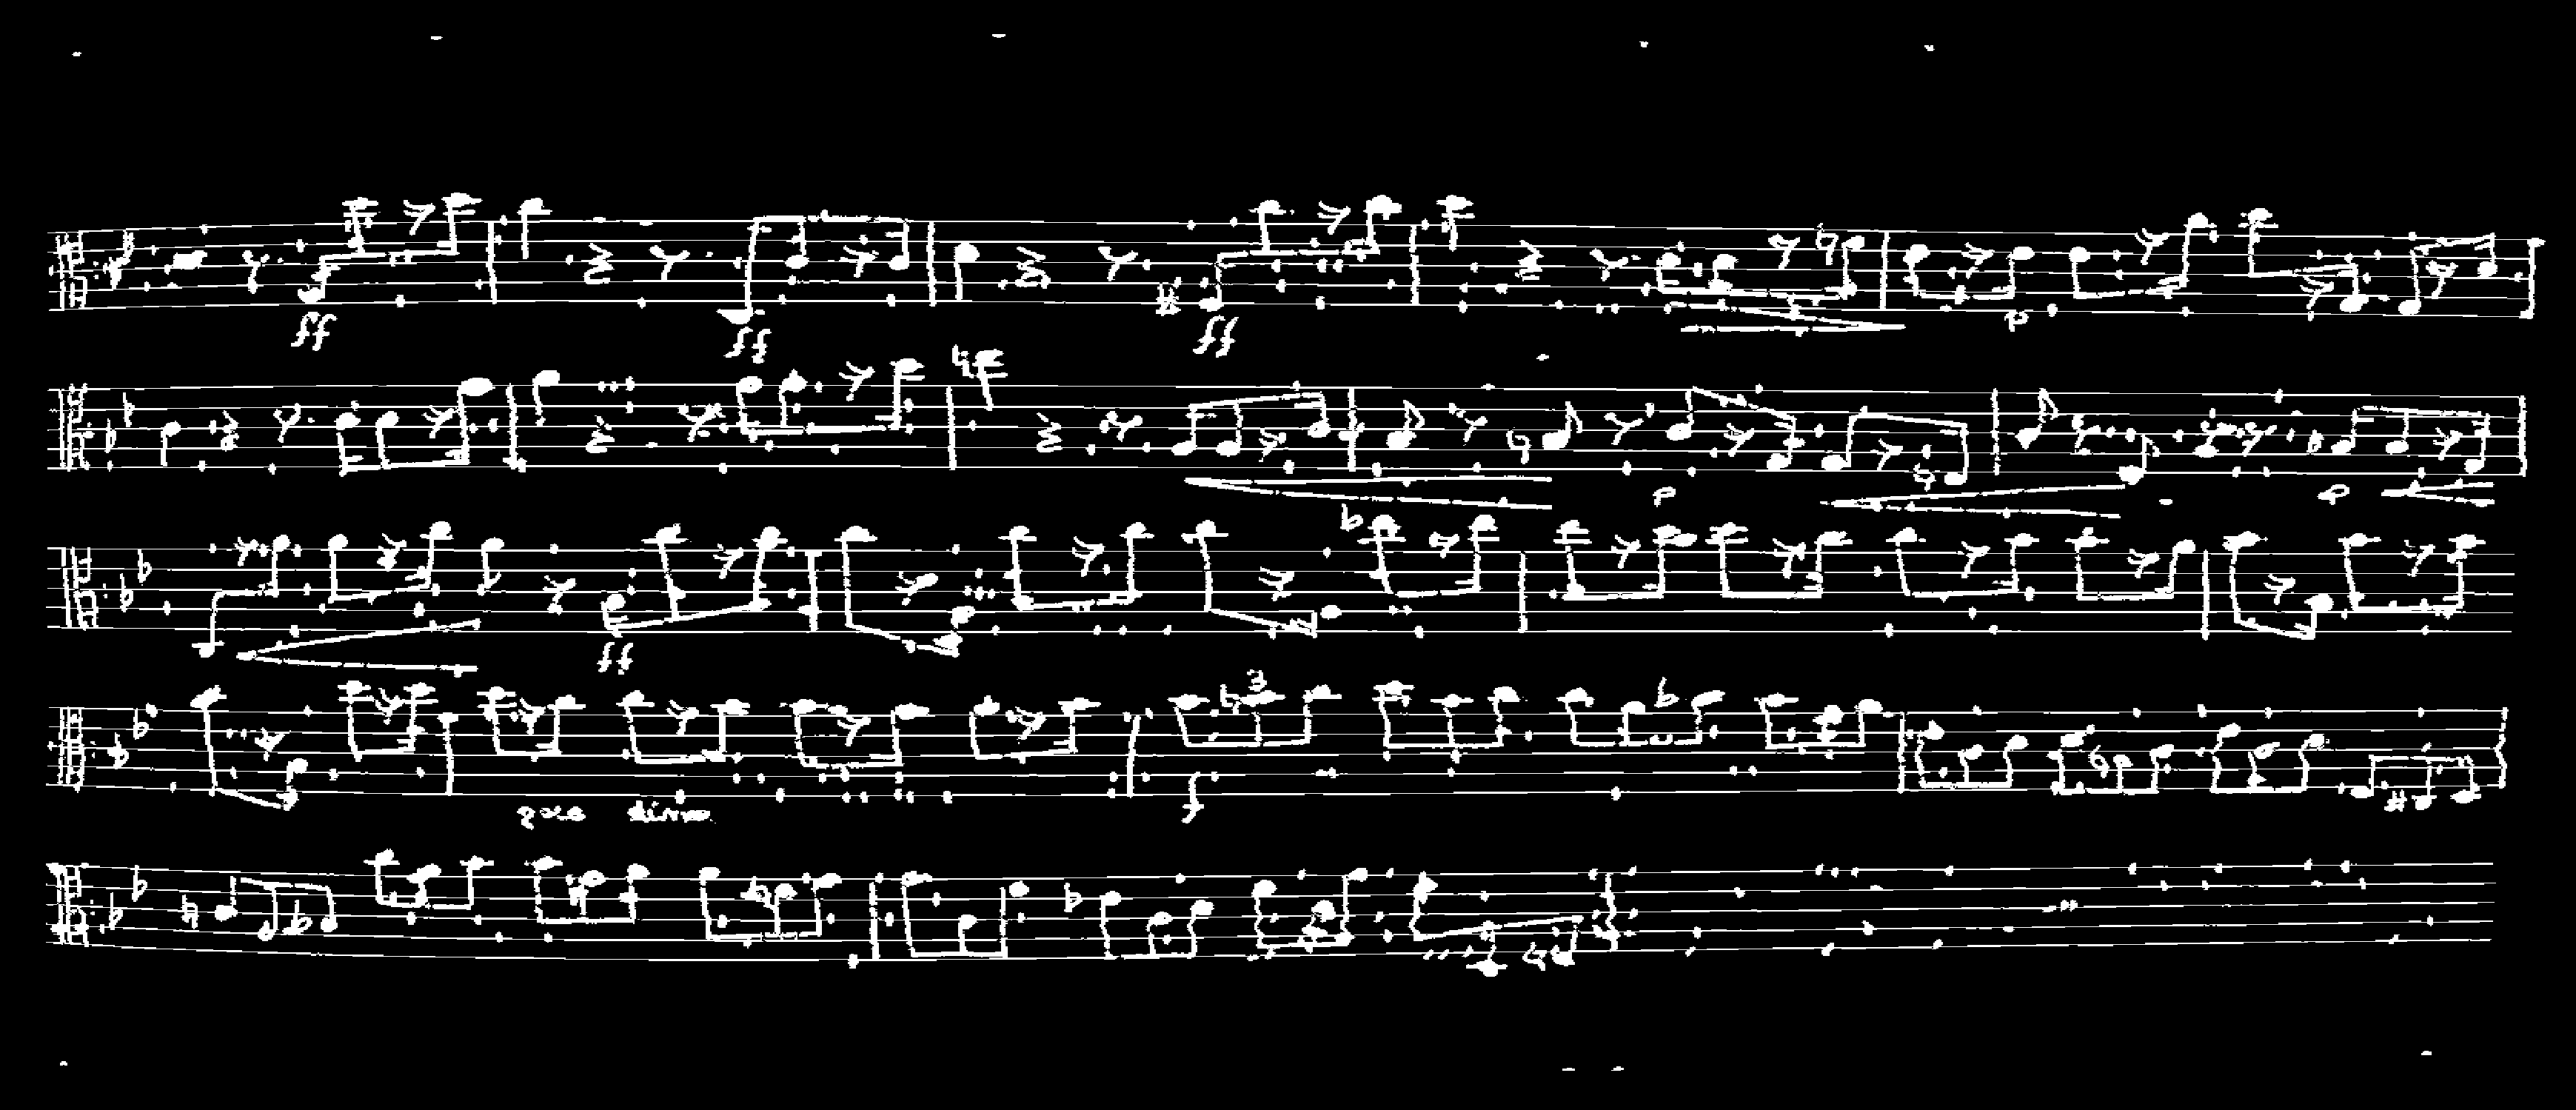 ff ff ff p
p p
ff
3
poco dim
f